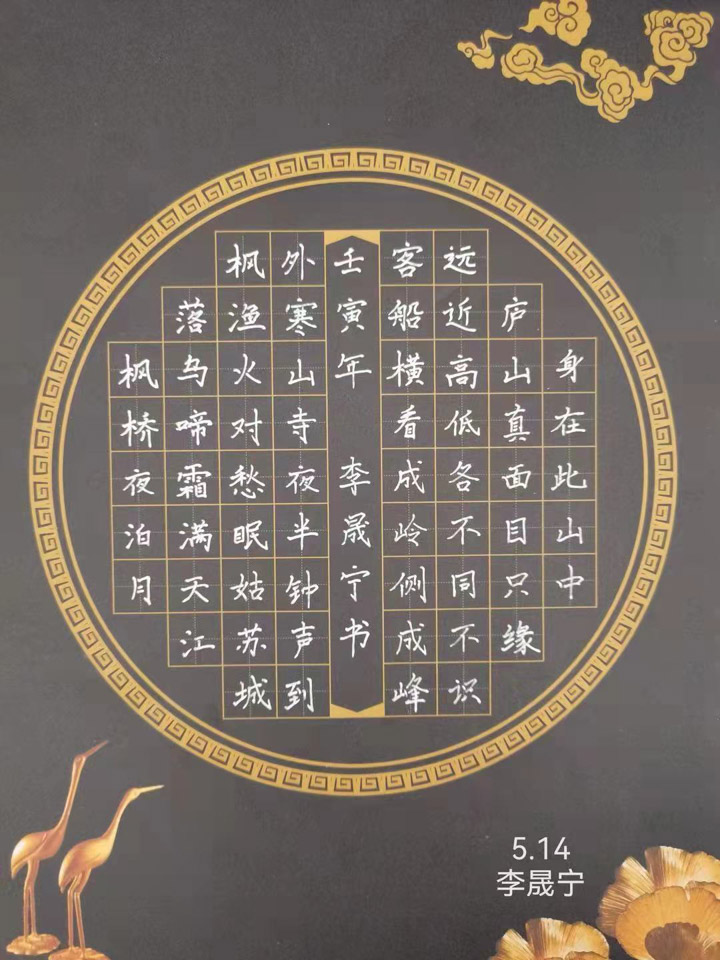 枫桥夜泊月
落乌啼霜满天江
枫渔火对愁眠姑苏城
外寒山寺夜半钟声到
壬寅年 李晟宁书
客船横看成岭侧成峰
远近高低各不同不识
庐山真面目只缘
身在此山中
5.14
李晟宁